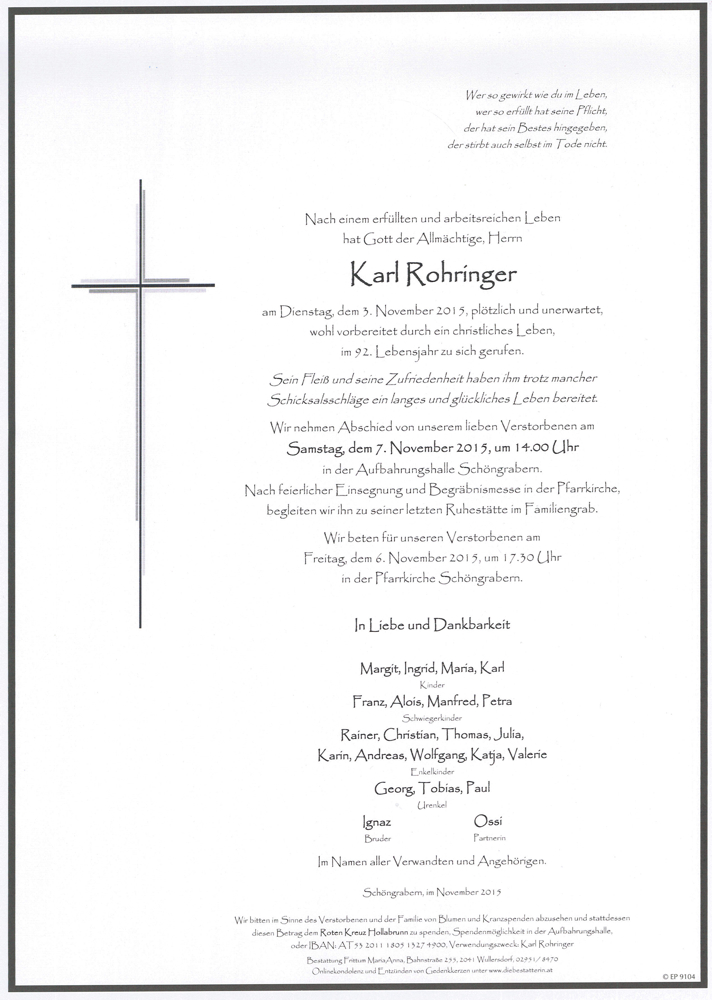 Wer so gewirkt wie du im Leben,
wer so erfüllt hat seine Pflicht,
der hat sein Bestes hingegeben,
der stirbt auch selbst im Tode nicht.
Nach einem erfüllten und arbeitsreichen Leben
hat Gott der Allmächtige, Herrn
Karl Rohringer
am Dienstag, dem 3. November 2015, plötzlich und unerwartet,
wohl vorbereitet durch ein christliches Leben,
im 92. Lebensjahr zu sich gerufen.
Sein Fleiß und seine Zufriedenheit haben ihm trotz mancher
Schicksalsschläge ein langes und glückliches Leben bereitet.
Wir nehmen Abschied von unserem lieben Verstorbenen am
Samstag, dem 7. November 2015, um 14.00 Uhr
in der Aufbahrungshalle Schöngrabern.
Nach feierlicher Einsegnung und Begräbnismesse in der Pfarrkirche,
begleiten wir ihn zu seiner letzten Ruhestätte im Familiengrab.
Wir beten für unseren Verstorbenen am
Freitag, dem 6. November 2015, um 17.30 Uhr
in der Pfarrkirche Schöngrabern.
In Liebe und Dankbarkeit
Margit, Ingrid, Maria, Karl
Kinder
Franz, Alois, Manfred, Petra
Schwiegerkinder
Rainer, Christian, Thomas, Julia,
Karin, Andreas, Wolfgang, Katja, Valerie
Enkelkinder
Georg, Tobias, Paul
Urenkel
Ignaz Ossi
Bruder Partnerin
Im Namen aller Verwandten und Angehörigen.
Schöngrabern, im November 2015
Wir bitten im Sinne des Verstorbenen und der Familie von Blumen und Kranzspenden abzusehen und stattdessen
diesen Betrag dem Roten Kreuz Hollabrunn zu spenden, Spendenmöglichkeit in der Aufbahrungshalle,
oder IBAN: AT53 2011 1805 1327 4900, Verwendungszweck: Karl Rohringer
Bestattung Frittum MariaAnna, Bahnstraße 255, 2041 Wullersdorf, 02951/8470
Onlinekondolenz und Entzünden von Gedenkkerzen unter www.diebestatterin.at
© EP 9104